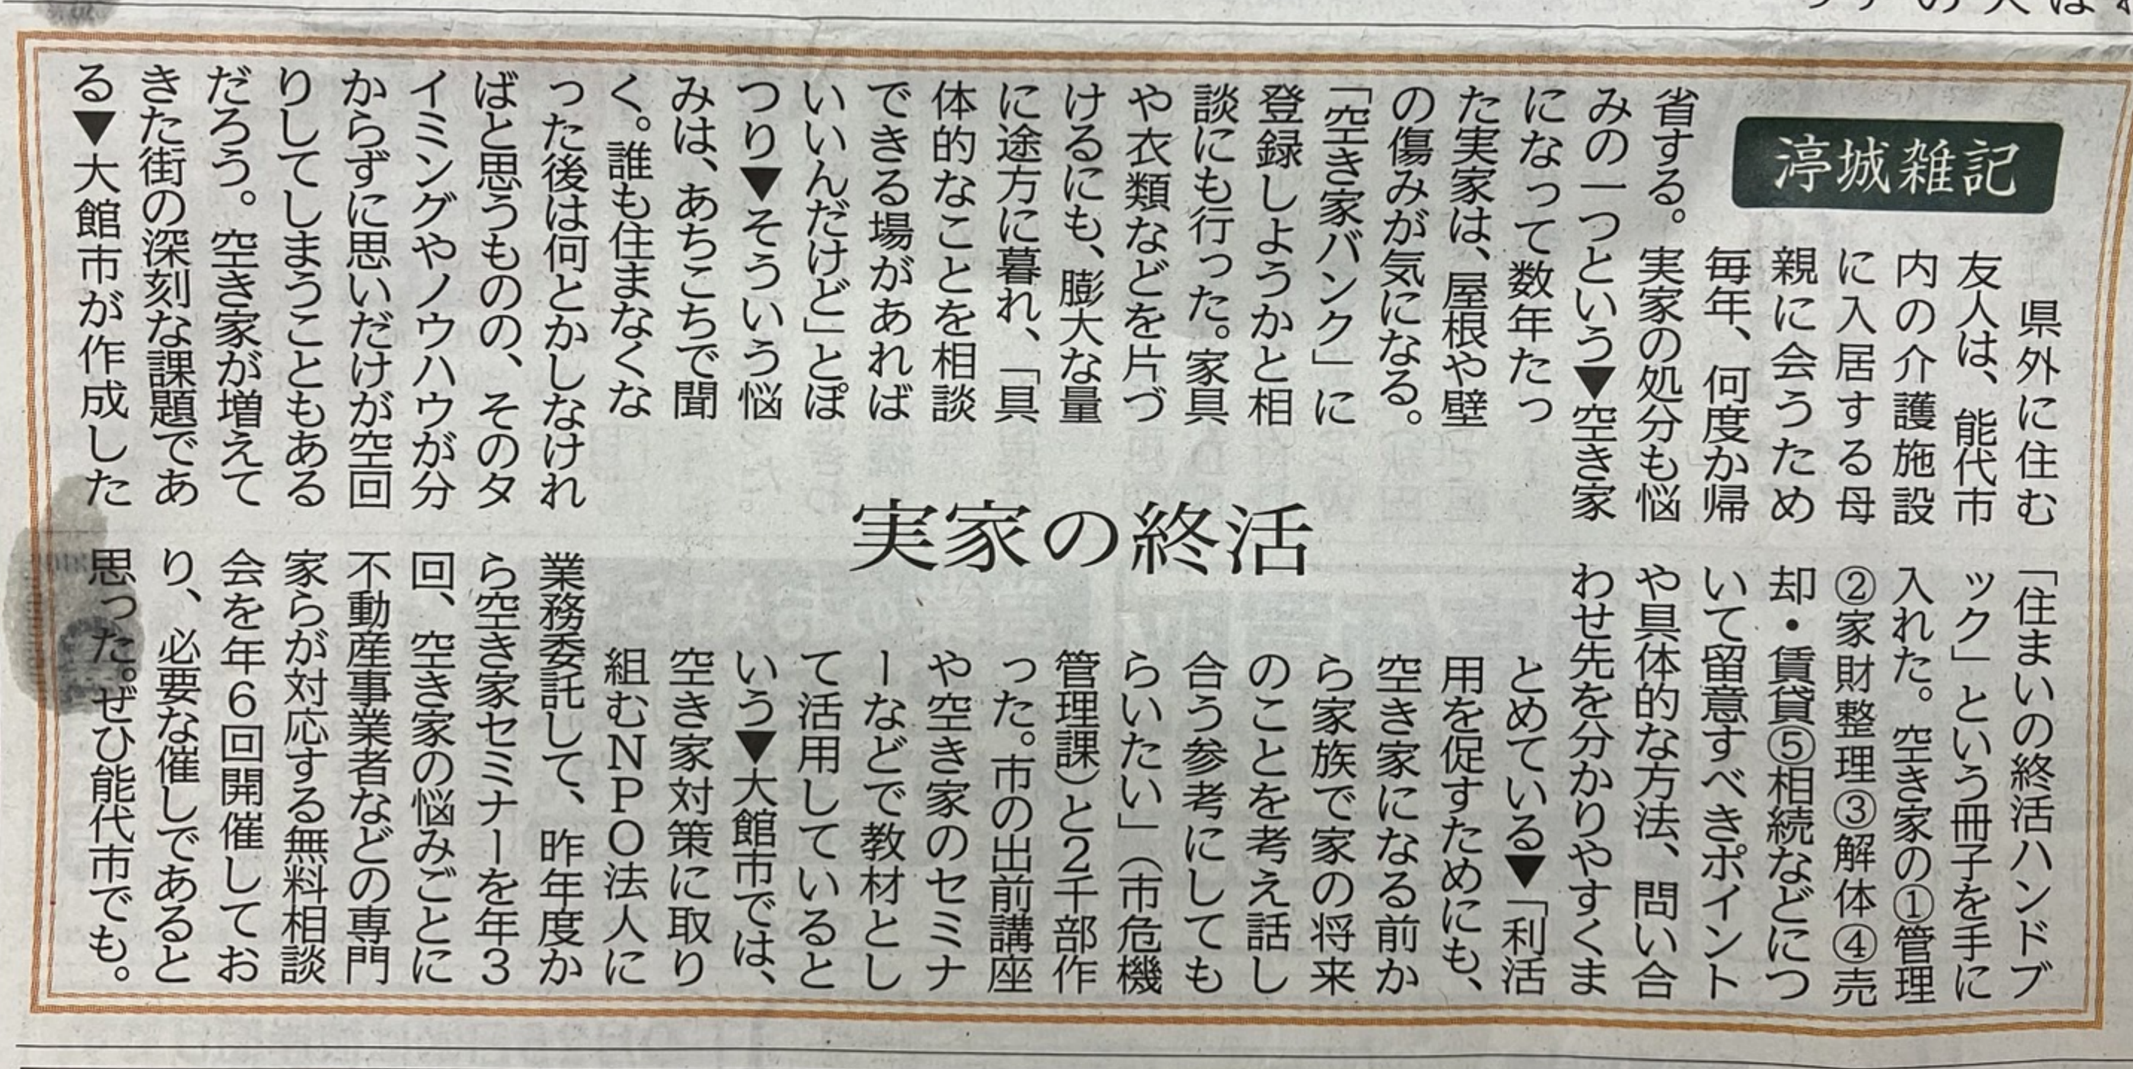 渟城雑記
実家の終活
県外に住む
友人は、能代市
内の介護施設
に入居する母
親に会うため
毎年、何度か帰
省する。実家の処分も悩
みの一つという▼空き家
になって数年たっ
た実家は、屋根や壁
の傷みが気になる。
「空き家バンク」に
登録しようかと相
談にも行った。家具
や衣類などを片づ
けるにも、膨大な量
に途方に暮れ、「具
体的なことを相談
できる場があれば
いいんだけど」とぽ
つり▼そういう悩
みは、あちこちで聞
く。誰も住まなくな
った後は何とかしなけれ
ばと思うものの、そのタ
イミングやノウハウが分
からずに思いだけが空回
りしてしまうこともある
だろう。空き家が増えて
きた街の深刻な課題であ
る▼大館市が作成した
「住まいの終活ハンドブ
ック」という冊子を手に
入れた。空き家の①管理
②家財整理③解体④売
却・賃貸⑤相続などにつ
いて留意すべきポイント
や具体的な方法、問い合
わせ先を分かりやすくま
とめている▼「利活
用を促すためにも、
空き家になる前か
ら家族で家の将来
のことを考え話し
合う参考にしても
らいたい」（市危機
管理課）と2千部作
った。市の出前講座
や空き家のセミナ
ーなどで教材とし
て活用していると
いう▼大館市では、
空き家対策に取り
組むNPO法人に
業務委託して、昨年度か
ら空き家セミナーを年3
回、空き家の悩みごとに
不動産事業者などの専門
家らが対応する無料相談
会を年6回開催してお
り、必要な催しであると
思った。ぜひ能代市でも。